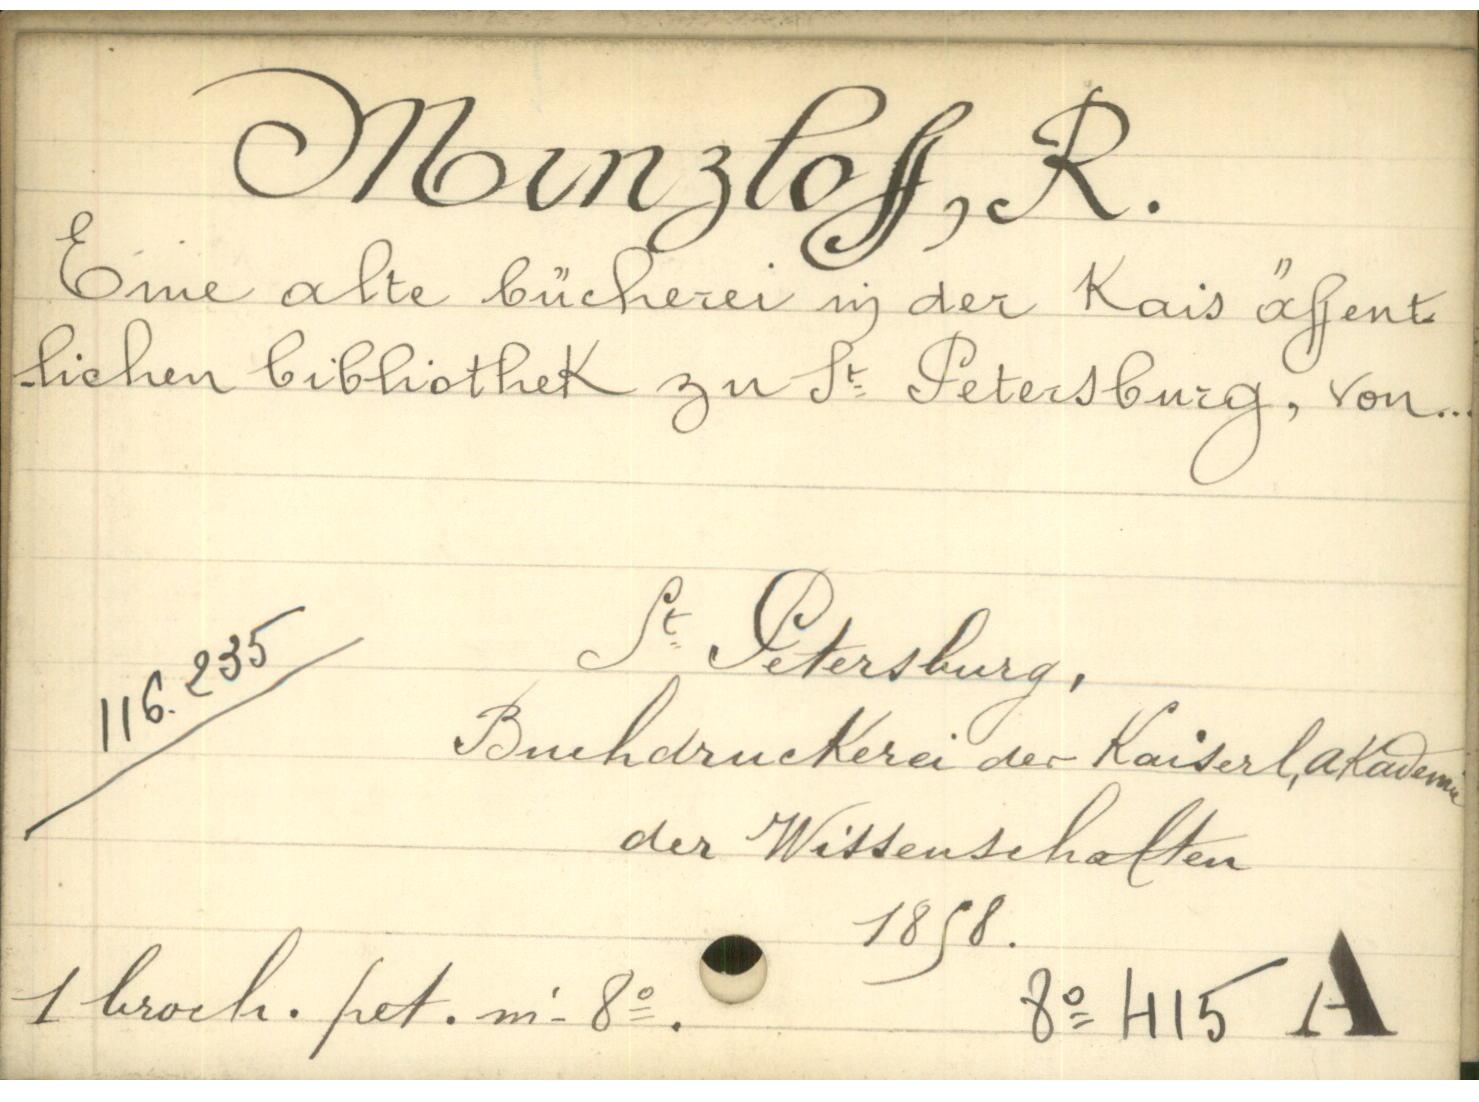 Minzloff, R.
Eine alte bücherei in der Kais äffent-
lichen bibliothek zu St Petersburg, von...
116.235
St Petersburg,
Buchdruckerei der Kaiserl, Akademie
der Wissenschalten
1858.
1 broch. pet. in-8º.
8º H15 A